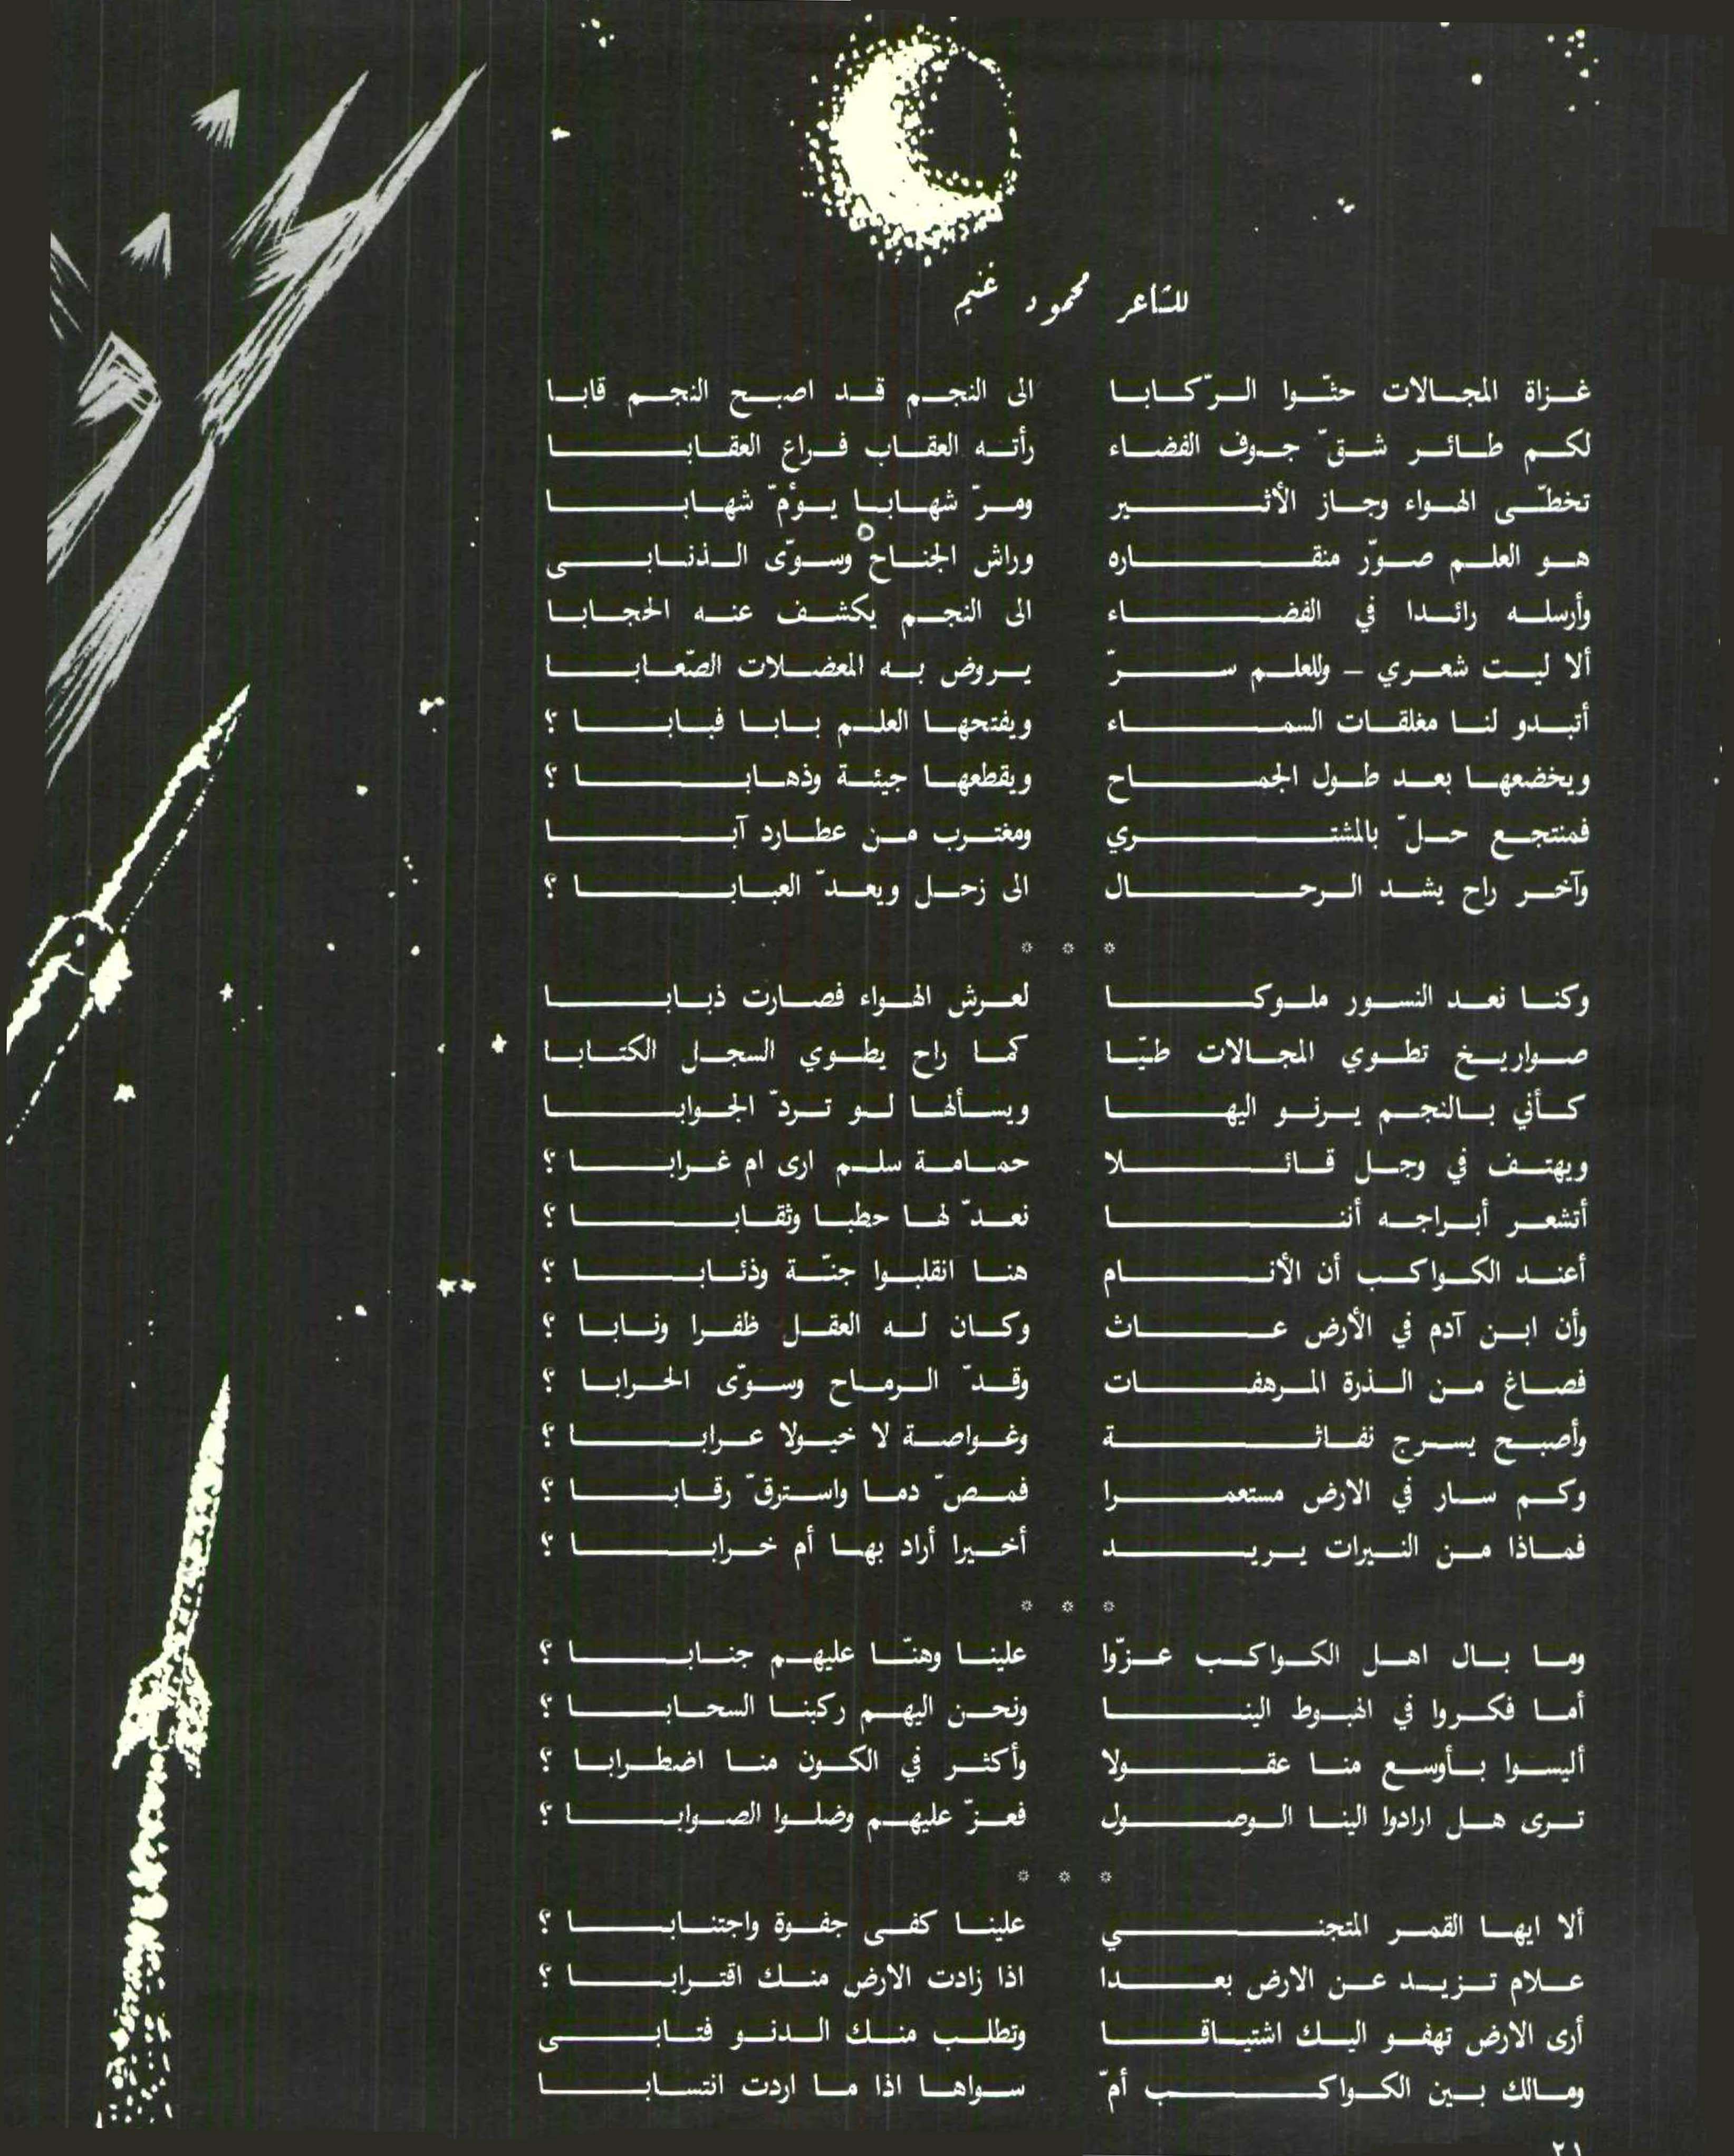 للشاعر محمود غنيم
غزاة المجالات حثّوا الرّكابا الى النجم قد اصبح النجم قابا
لكم طائر شقّ جوف الفضاء رأته العقاب فراع العقابا
تخطّى الهواء وجاز الأثير ومرّ شهابا يؤمّ شهابا
هو العلم صوّر منقاره وراش الجناح وسوّى الذنابى
وأرسله رائدا في الفضاء الى النجم يكشف عنه الحجابا
ألا ليت شعري – وللعلم سرّ يروض به المعضلات الصّعابا
أتبدو لنا مغلقات السماء ويفتحها العلم بابا فبابا ؟
ويخضعها بعد طول الجماح ويقطعها جيئة وذهابا ؟
فمنتجع حلّ بالمشتري ومغترب من عطارد آبا
وآخر راح يشد الرحال الى زحل ويعدّ العبابا ؟
* * *
وكنا نعد النسور ملوكا لعرش الهواء فصارت ذبابا
صواريخ تطوي المجالات طيّا كما راح يطوي السجل الكتابا
كأني بالنجم يرنو اليها ويسألها لو تردّ الجوابا
ويهتف في وجل قائلا حمامة سلم ارى ام غرابا ؟
أتشعر أبراجه أننا نعدّ لها حطبا وثقابا ؟
أعند الكواكب أن الأنام هنا انقلبوا جنّة وذئابا ؟
وأن ابن آدم في الأرض عاث وكان له العقل ظفرا ونابا ؟
فصاغ من الذرة المرهفات وقدّ الرماح وسوّى الحرابا ؟
وأصبح يسرج نفاثة وغواصة لا خيولا عرابا ؟
وكم سار في الارض مستعمرا فمصّ دما واسترقّ رقابا ؟
فماذا من النيرات يريد أخيرا أراد بها أم خرابا ؟
* * *
وما بال اهل الكواكب عزّوا علينا وهنّا عليهم جنابا ؟
أما فكروا في الهبوط الينا ونحن اليهم ركبنا السحابا ؟
أليسوا بأوسع منا عقولا وأكثر في الكون منا اضطرابا ؟
ترى هل ارادوا الينا الوصول فعزّ عليهم وضلوا الصوابا ؟
* * *
ألا ايها القمر المتجني علينا كفى جفوة واجتنابا ؟
علام تزيد عن الارض بعدا اذا زادت الارض منك اقترابا ؟
أرى الارض تهفو اليك اشتياقا وتطلب منك الدنو فتابى
ومالك بين الكواكب أمّ سواها اذا ما اردت انتسابا
٢١